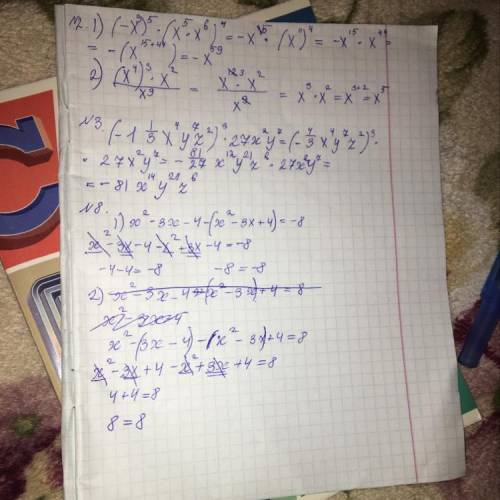 №2. 1) (-x³)⁵ · (x⁵ · x⁶)⁴ = -x¹⁵ · (x¹¹)⁴ = -x¹⁵ · x⁴⁴ =
= -(x¹⁵⁺⁴⁴) = -x⁵⁹
2) (x⁴)³ · x² / x⁹ = x¹² · x² / x⁹ = x³ · x² = x³⁺² = x⁵
№3. (-1 1/3 x⁴y⁷z²)³ · 27x²y⁷ = (-4/3 x⁴y⁷z²)³ ·
· 27x²y⁷ = -81/27 x¹²y²¹z⁶ · 27x²y⁷ =
= -81x¹⁴y²⁸z⁶
№8.
1) x² - 3x - 4 - (x² - 3x + 4) = -8
x² - 3x - 4 - x² + 3x - 4 = -8
-4 - 4 = -8 -8 = -8
2) x² - 3x - 4 - (x² - 3x) + 4 = 8
x² - 3x - 4
x² - (3x - 4) - (x² - 3x) + 4 = 8
x² - 3x + 4 - x² + 3x + 4 = 8
4 + 4 = 8
8 = 8